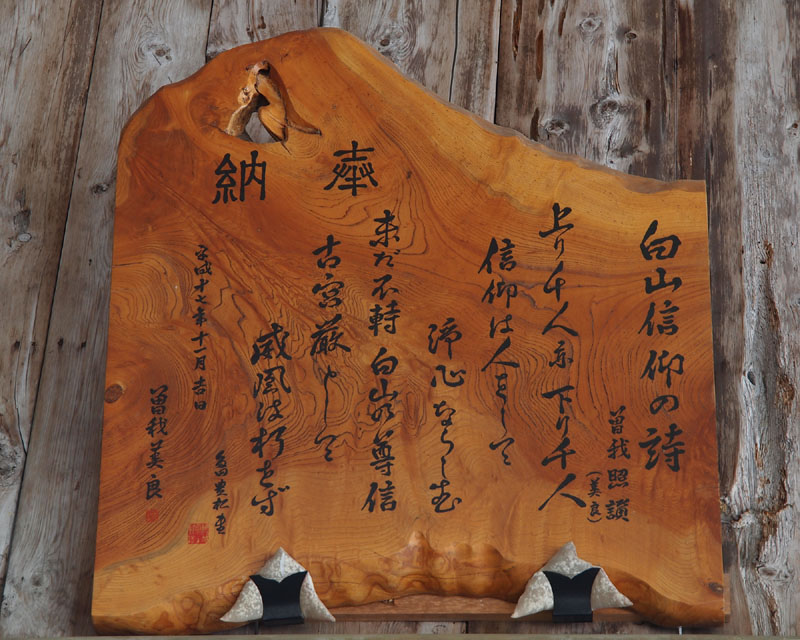 奉納
白山信仰の詩
曽我照讃
(美良)
上り千人亦下り千人
信仰は人をして
諦心ならし
未だ不轉 白山の尊信
古宮厳として
威風は朽せず
平成十七年十一月吉日
曽我美良